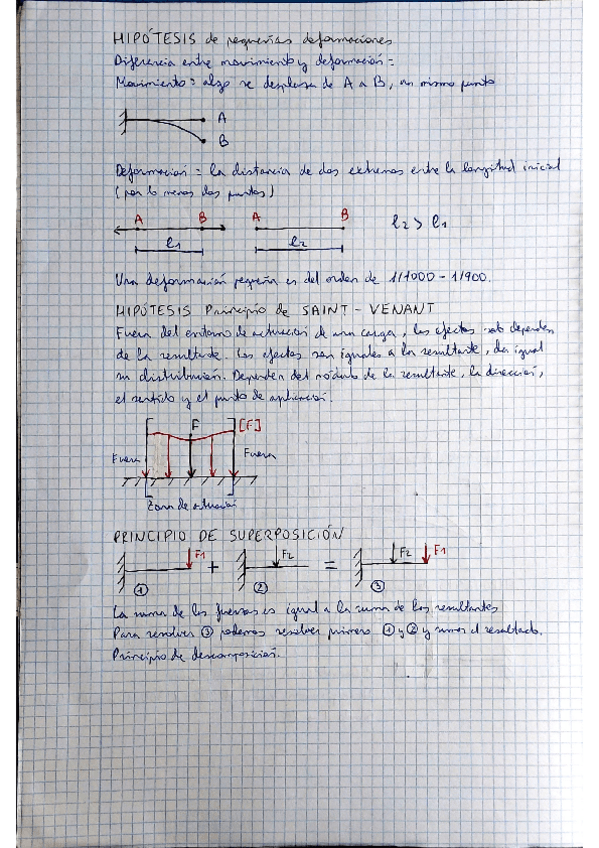 HIPÓTESIS de pequeñas deformaciones
Diferencia entre movimiento y deformación:
Movimiento: algo se desplaza de A a B, un mismo punto
A
B
Deformación: la distancia de dos extremos entre la longitud inicial
(por lo menos dos puntos)
A B A B l2 > l1
l1 l2
Una deformación pequeña es del orden de 1/1000 - 1/900.
HIPÓTESIS Principio de SAINT - VENANT
Fuera del entorno de actuación de una carga, los efectos solo dependen
de la resultante. Los efectos son iguales a la resultante, da igual
su distribución. Dependen del módulo de la resultante, la dirección,
el sentido y el punto de aplicación.
F [F]
Fuera Fuera
Zona de actuación
PRINCIPIO DE SUPERPOSICIÓN
F1 + F2 = F2 F1
① ② ③
La suma de las fuerzas es igual a la suma de las resultantes
Para resolver ③ podemos resolver primero ① y ② y sumar el resultado.
Principio de descomposición.